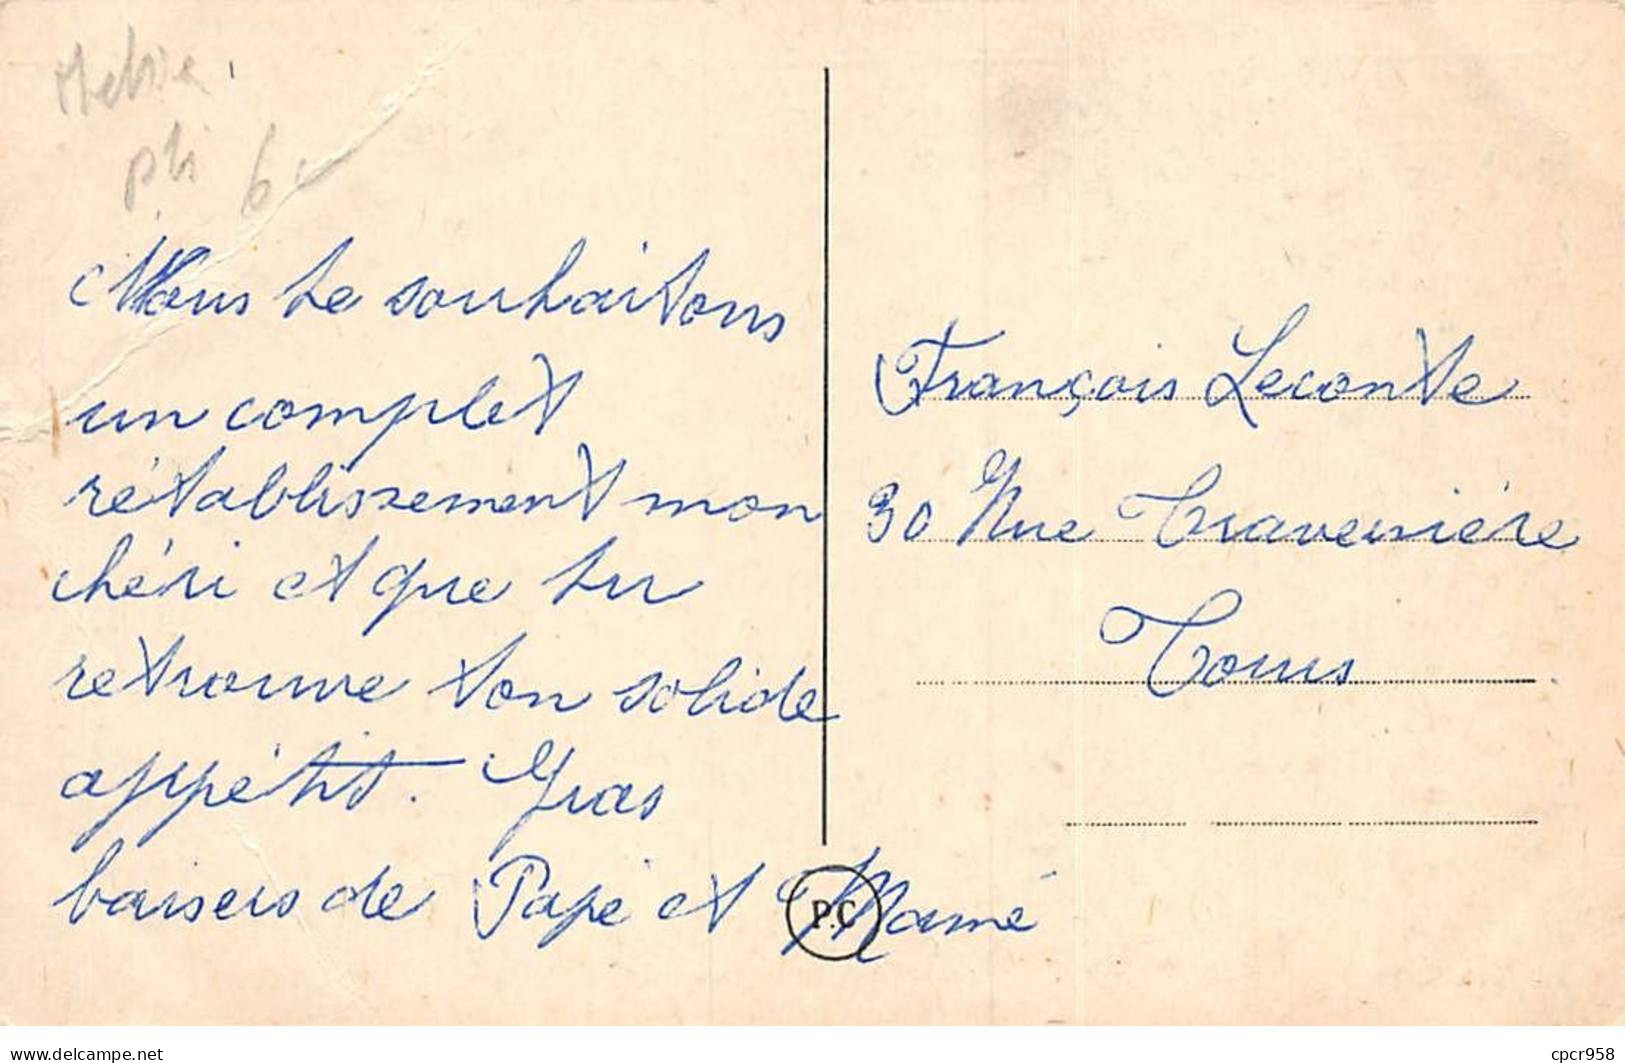 pli 6
Nous te souhaitons
un complet
rétablissement mon
chéri et que tu
retrouve ton solide
appétit. Gros
baisers de Papé et Mamé
P.C
François Leconte
30 Rue Traversière
Tours
www.delcampe.net
cpcr958